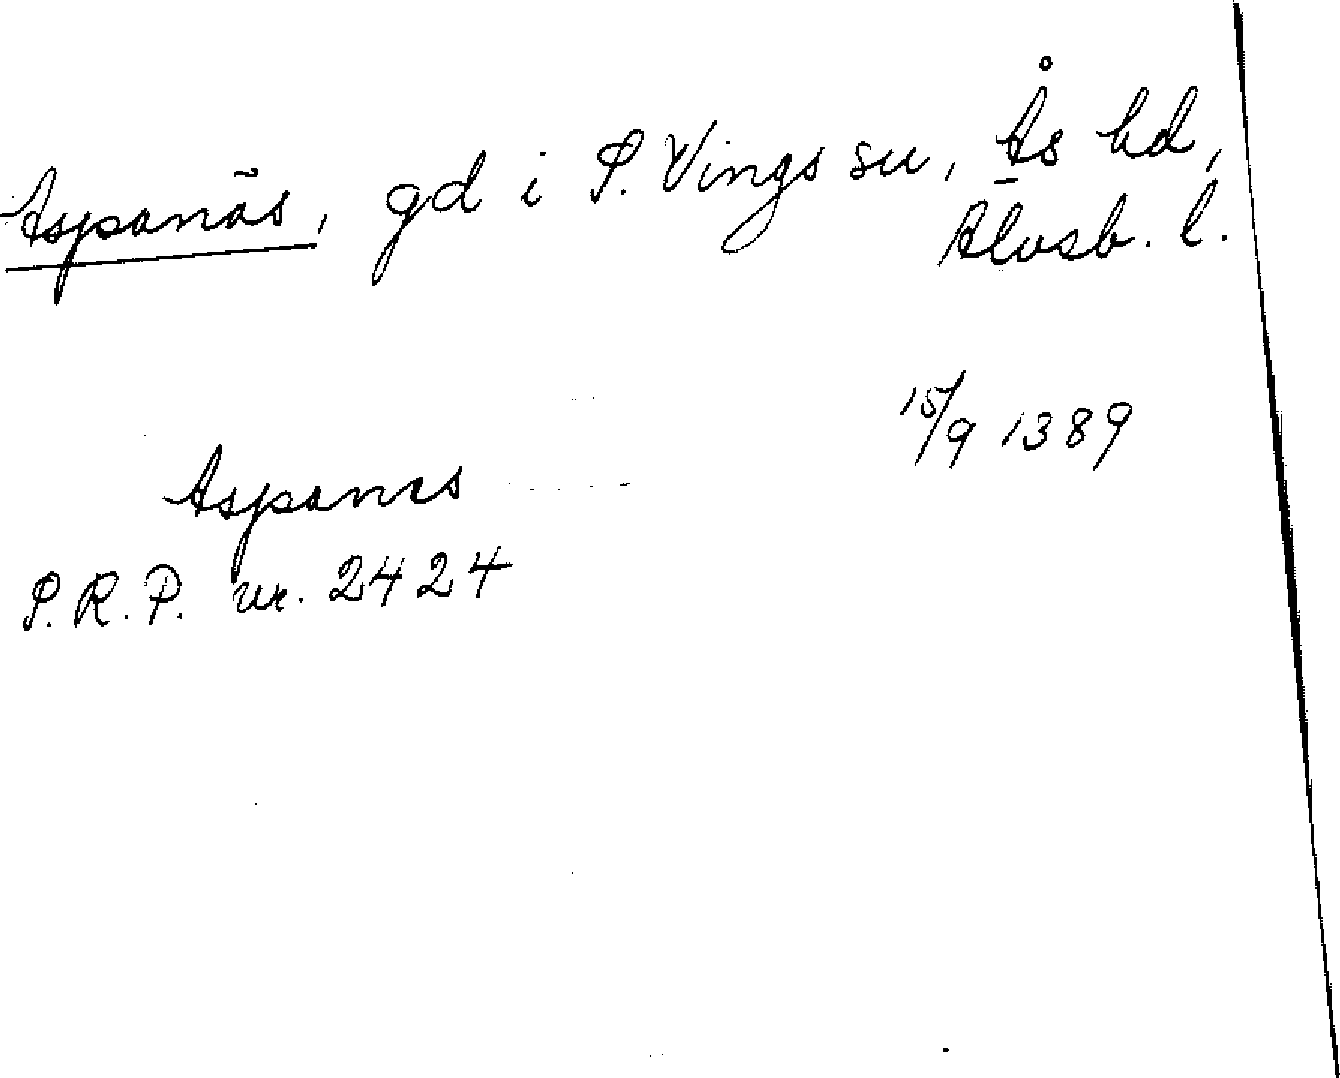 Aspanäs, gd i S. Vings sn, Ås hd,
Älvsb. l.
15/9 1389
Aspanes
S.R.P. nr. 2424